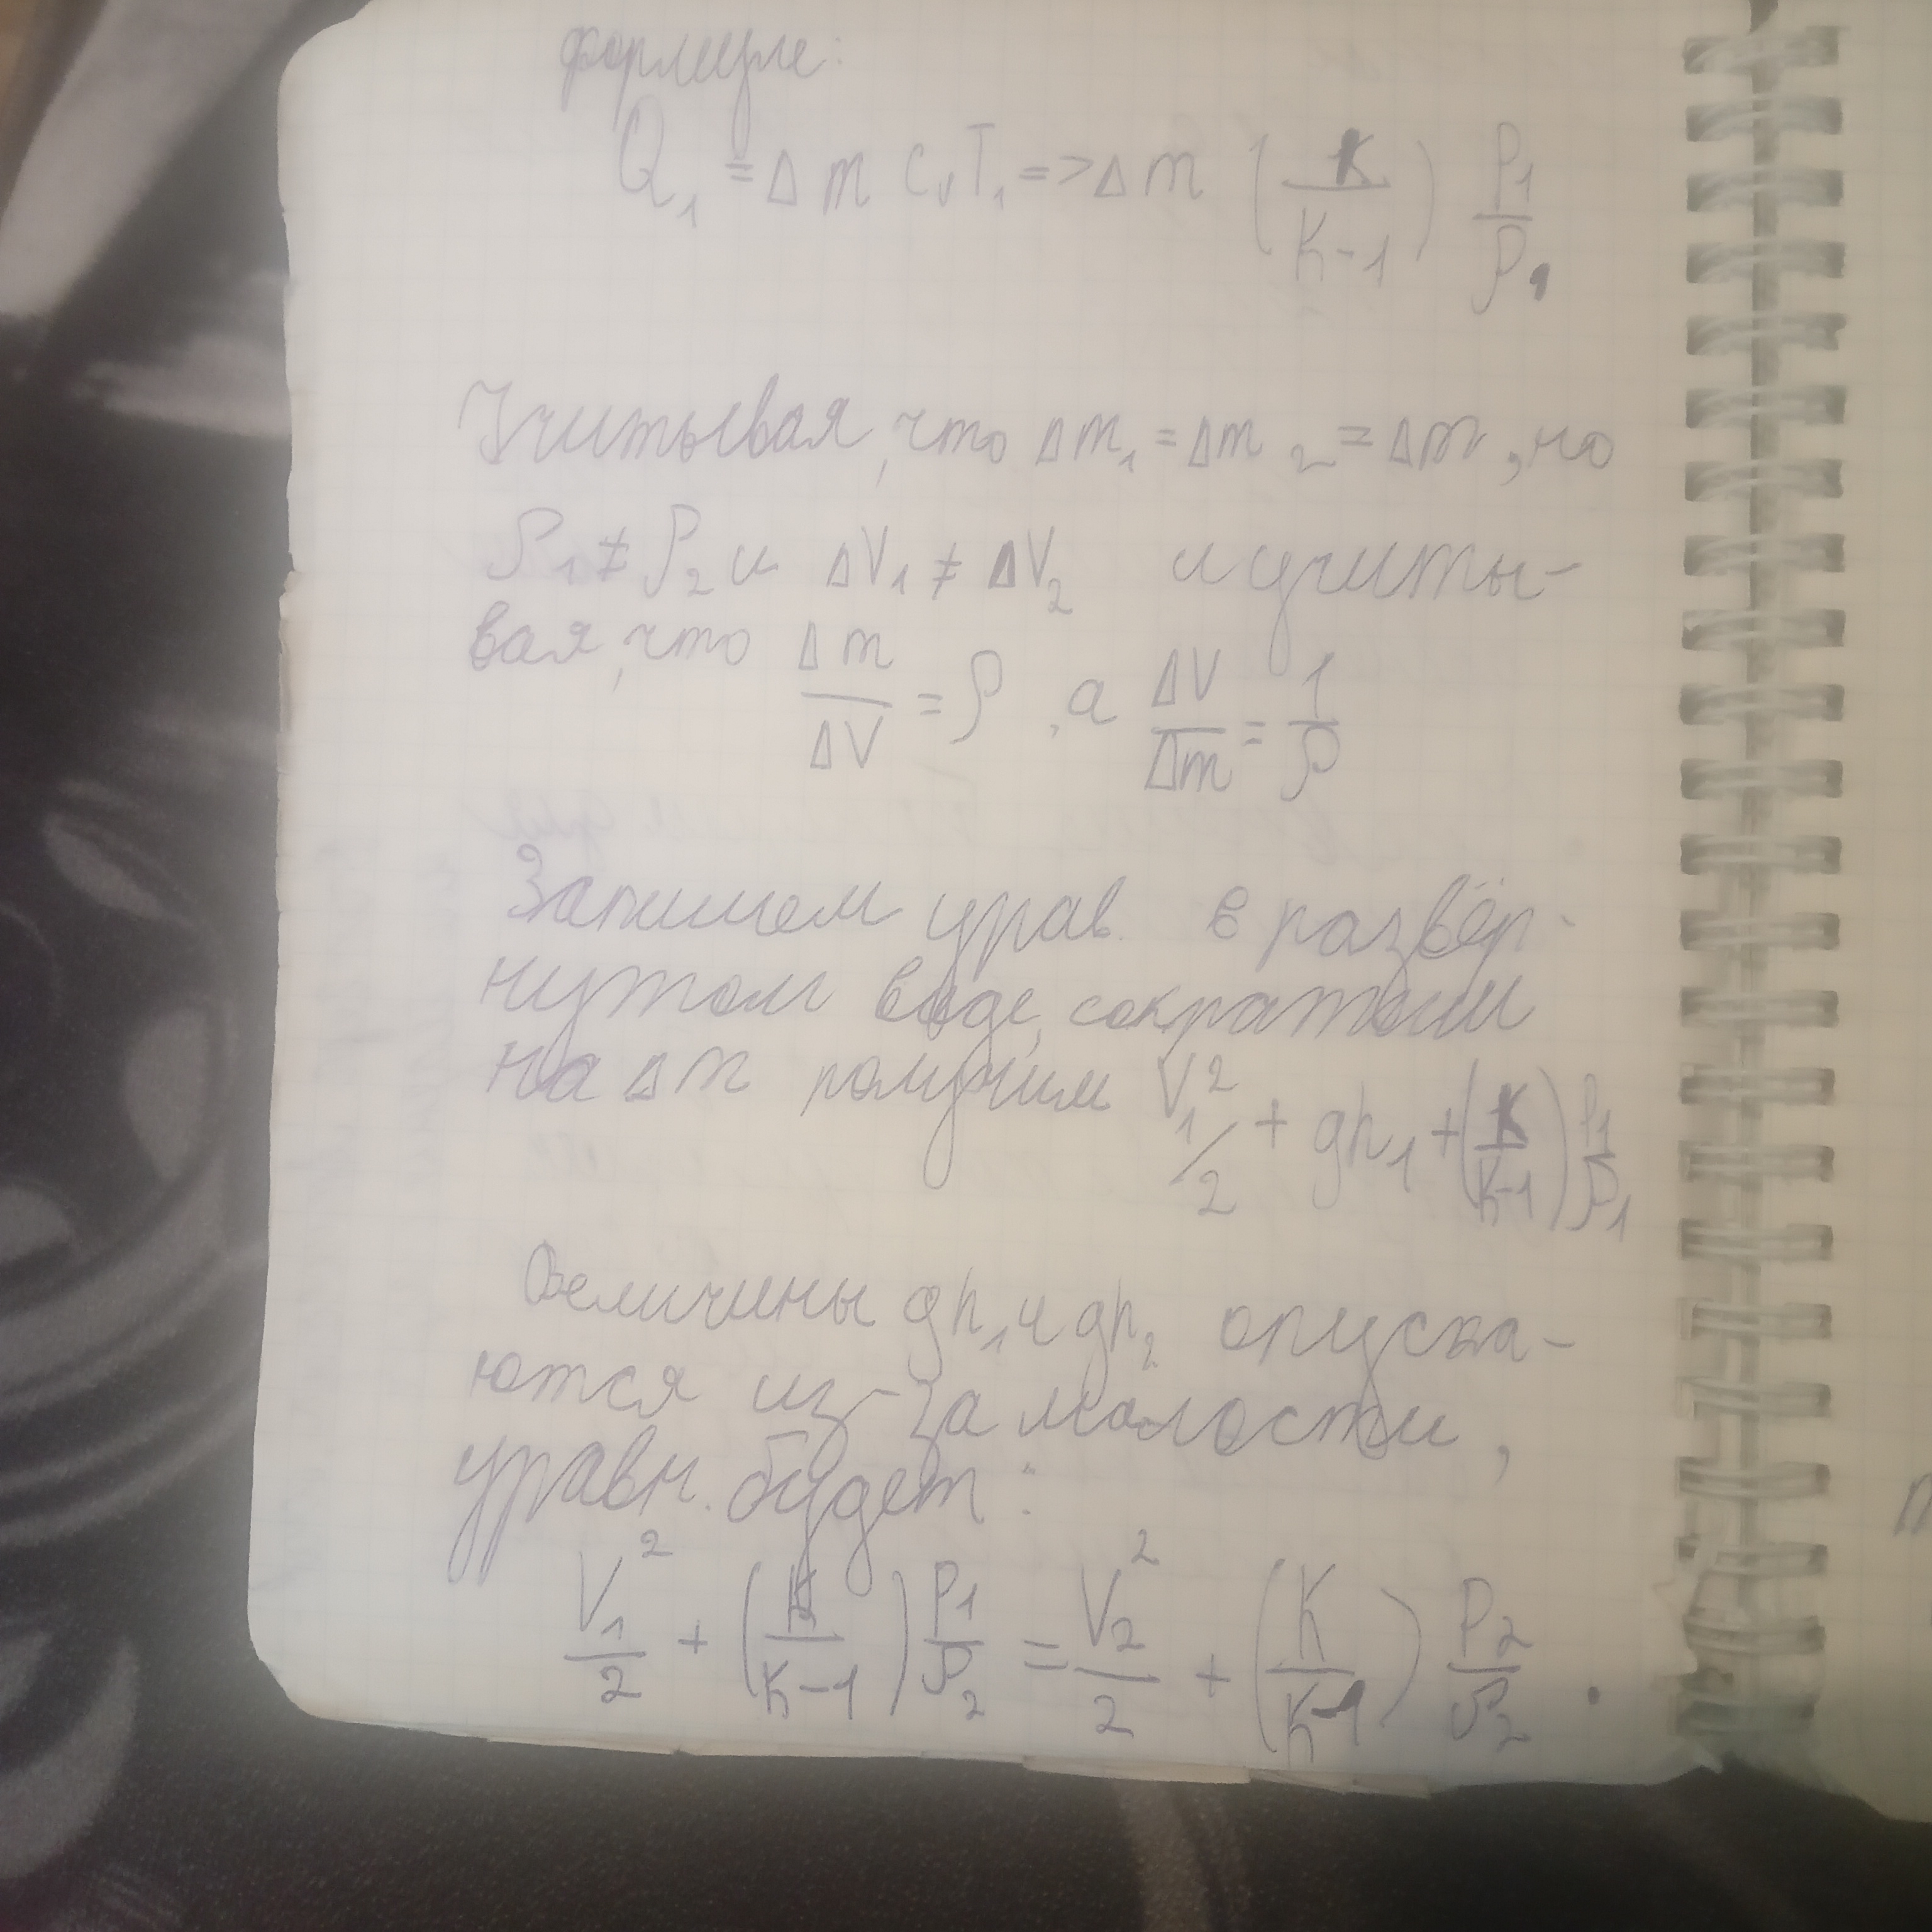 формуле:
Q₁ = Δm cᵥT₁ => Δm (K/(K-1)) P₁/ρ₁
Учитывая, что Δm₁ = Δm₂ = Δm, но
ρ₁ ≠ ρ₂ и ΔV₁ ≠ ΔV₂ и учиты-
вая, что Δm/ΔV = ρ, а ΔV/Δm = 1/ρ
Запишем урав. в развёр-
нутом виде, сократим
на Δm получим V₁²/2 + gh₁ + (K/(K-1)) P₁/ρ₁
Величины gh₁ и gh₂ опуска-
ются из-за малости,
уравн. будет:
V₁²/2 + (K/(K-1)) P₁/ρ₂ = V₂²/2 + (K/(K-1)) P₂/ρ₂ .